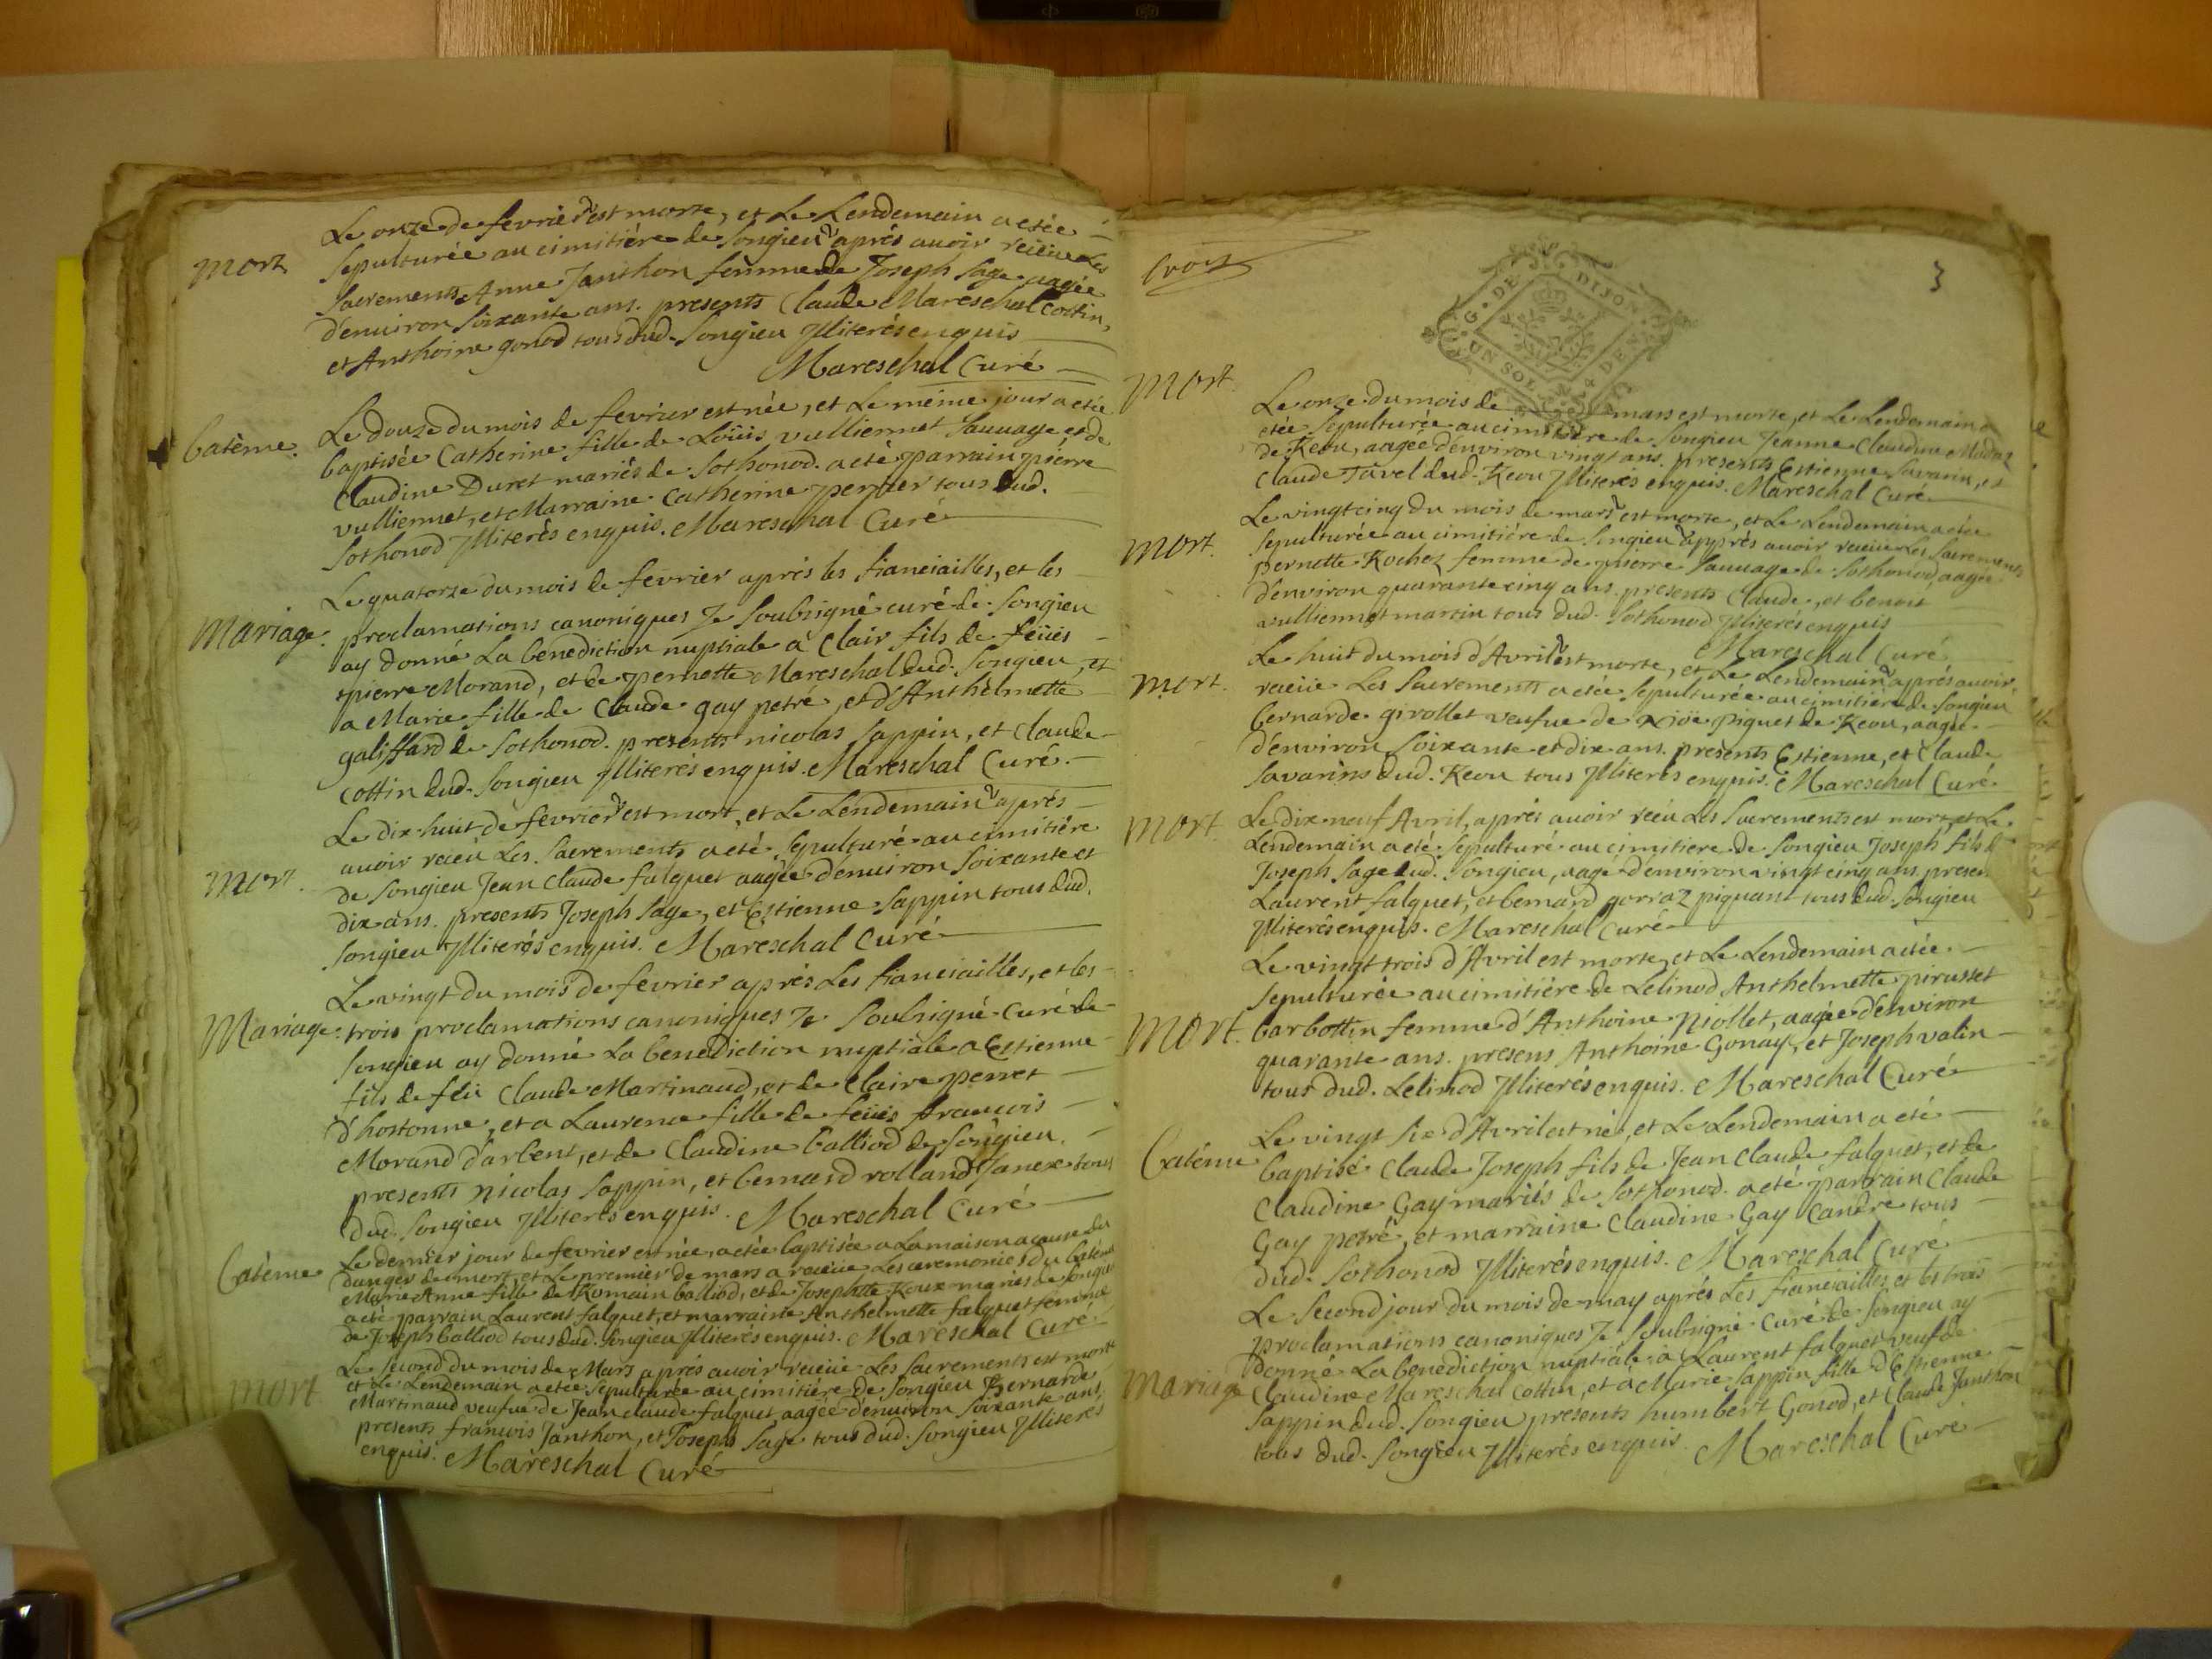 Le onze de fevrier est morte, et Le Lendemain a etée
mort Sepulturée au cimitiére de Songieu aprés auoir receüe Les
Sacrements Anne Janthon femme de Joseph Sage aagée
d'enuiron Soixante ans. presents Claude Mareschal Cottin,
et Anthoine gonod tous dud. Songieu Jlliterés enquis
Mareschal Curé
batême. Le douze du mois de fevrier est née, et Le méme jour a etée
baptisée Catherine fille de Loüis vulliermet Sauuage et de
Claudine Duret mariés de Sothonod. a eté parrain pierre
vulliermet, et Marraine Catherine perrier tous dud.
Sothonod Jlliterés enquis. Mareschal Curé
Le quatorze du mois de fevrier aprés les fianciailles, et les
Mariage. proclamations canoniques Je Soubsigné curé de Songieu
ay donné La benediction nuptiale a Clair fils de feües
pierre Morand, et de pernette Mareschal dud. Songieu, et
a Marie fille de Claude gay petré, et d'Anthelmette
galiffard de Sothonod. presents nicolas Sappin, et Claude
Cottin dud. Songieu Jlliterés enquis. Mareschal Curé.
Le dix-huit de fevrier est mort, et Le Lendemain aprés
auoir receü Les Sacrements a eté Sepulturé au cimitiére
mort. de Songieu Jean Claude falquet aagée d'enuiron Soixante et
dix ans. presents Joseph Sage, et Estienne Sappin tous dud.
Songieu Jlliterés enquis. Mareschal Curé
Le vingt du mois de fevrier aprés Les fianciailles, et les
Mariage. trois proclamations canoniques Je Soubsigné Curé de
Songieu ay donné La benediction nuptiale a Estienne
fils de feü Claude Martinaud, et de Claire perret
d'hostonne, et a Laurence fille de feües francois
Morand d'arbent, et de Claudine balliod de Songieu.
presents nicolas Sappin, et bernard rolland Janex tous
dud. Songieu Jlliterés enquis. Mareschal Curé
batême Le dernier jour de fevrier est née, a etée baptisée a La maison a cause du
danger de mort, et Le premier de mars a receüe Les ceremonies du batême
Marie Anne fille de Romain balliod, et de Josephte Roux mariés de Songieu
a eté parrain Laurent falquet, et marraine Anthelmette falquet femme
de Joseph balliod tous dud. Songieu Jlliterés enquis. Mareschal Curé.
Le Second du mois de Mars aprés auoir receüe Les Sacrements est morte
mort et Le Lendemain a etée Sepulturée au cimitiére de Songieu Bernarde
Martinaud veufue de Jean claude falquet aagée d'enuiron Soixante ans,
presents francois Janthon, et Joseph Sage tous dud. Songieu Jlliterés
enquis. Mareschal Curé
trois
3
G. DE DIJON
UN SOL 4 DEN.
mort. Le onze du mois de mars est morte, et Le Lendemain a
etée Sepulturée au cimitiére de Songieu Jeanne Claudine
de Keou, aagée d'environ vingt ans. presents Estienne Savarin, et
Claude Tavel dud. Keou Jlliterés enquis. Mareschal Curé
Le vingt cinq du mois de mars est morte, et Le Lendemain a etée
mort. Sepulturée au cimitiére de Songieu appprés auoir receüe Les Sacrements
pernette Rochez femme de pierre Sauuage de Sothonod, aagée
d'environ quarante cinq ans. presents Claude, et benoit
vulliermet martin tous dud. Sothonod Jlliterés enquis
Mareschal Curé
Le huit du mois d'Avril est morte, et Le Lendemain aprés auoir
mort. receüe Les Sacrements a etée Sepulturée au cimitiére de Songieu
bernarde girollet veufue de piquet de Keou, aagée
d'environ Soixante et dix ans. presents Estienne, et Claude
Savarins dud. Keou tous Jlliterés enquis. Mareschal Curé
mort. Le dix-neuf Avril, aprés auoir receü Les Sacrements est mort, et Le
Lendemain a eté Sepulturé au cimitiere de Songieu Joseph fils
Joseph Sage dud. Songieu, aagé d'environ vingt cinq ans. presen
Laurent falquet, et bernard gorraz piquant tous dud. Songieu
Jlliterés enquis. Mareschal Curé
Le vingt trois d'Avril est morte, et Le Lendemain a etée
Sepulturée au cimitiére de Lelinod Anthelmette pirusset
mort. barbottin femme d'Anthoine niollet, aagée d'environ
quarante ans. presens Anthoine Gonay, et Joseph valin
tous dud. Lelinod Jlliterés enquis. Mareschal Curé
Le vingt Six d'Avril est né, et Le Lendemain a eté
batême baptisé Claude Joseph fils de Jean Claude falquet, et de
Claudine Gay mariés de Sothonod. a eté parrain Claude
Gay petré, et marraine Claudine Gay Candre tous
dud. Sothonod Jlliterés enquis. Mareschal Curé
Le Second jour du mois de may aprés Les fianciailles, et les trois
proclamations canoniques Je Soubsigné Curé de Songieu ay
donné La benediction nuptiale a Laurent falquet veuf de
Mariage Claudine Mareschal Cottin, et a Marie Sappin fille d'Estienne
Sappin dud. Songieu presents humbert Gonod, et Claude Janthon
tous dud. Songieu Jlliterés enquis. Mareschal Curé